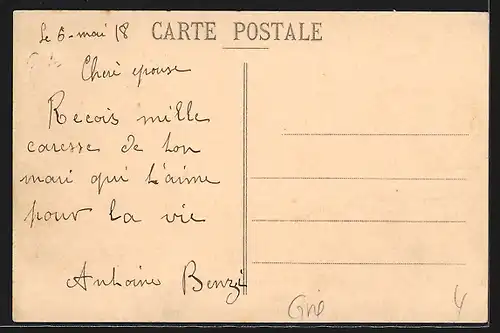 Le 6-mai 18 CARTE POSTALE
Cheré epouse
Recois mille
caresse de ton
mari qui t'aime
pour la vie
Antoine Benzi